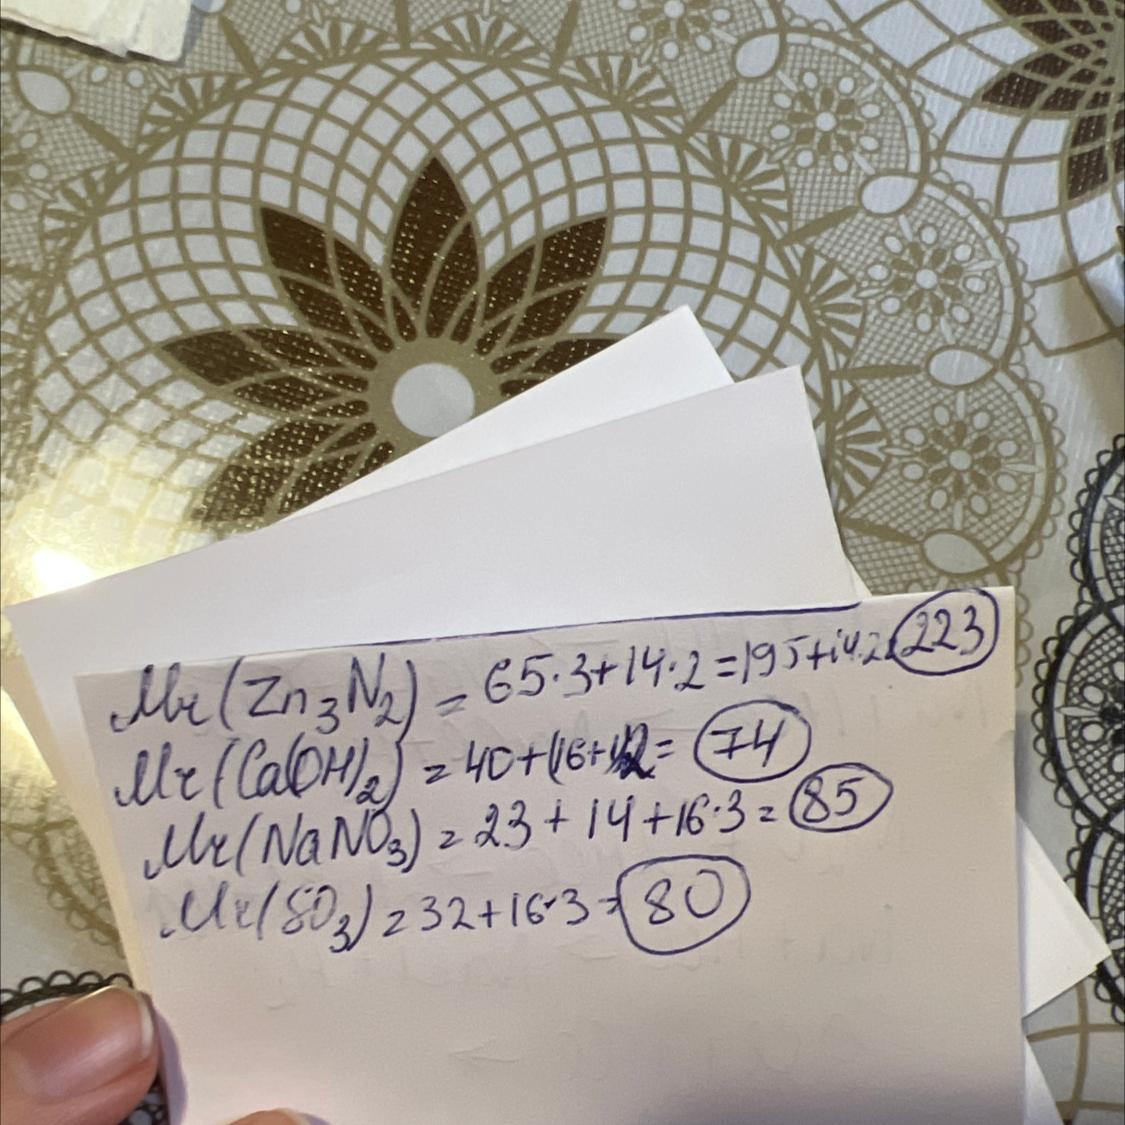 Mr(Zn₃N₂) = 65·3+14·2=195+14·2=223
Mr(Ca(OH)₂) = 40+(16+1)2= 74
Mr(NaNO₃) = 23 + 14 +16·3= 85
Mr(SO₃) = 32+16·3=80